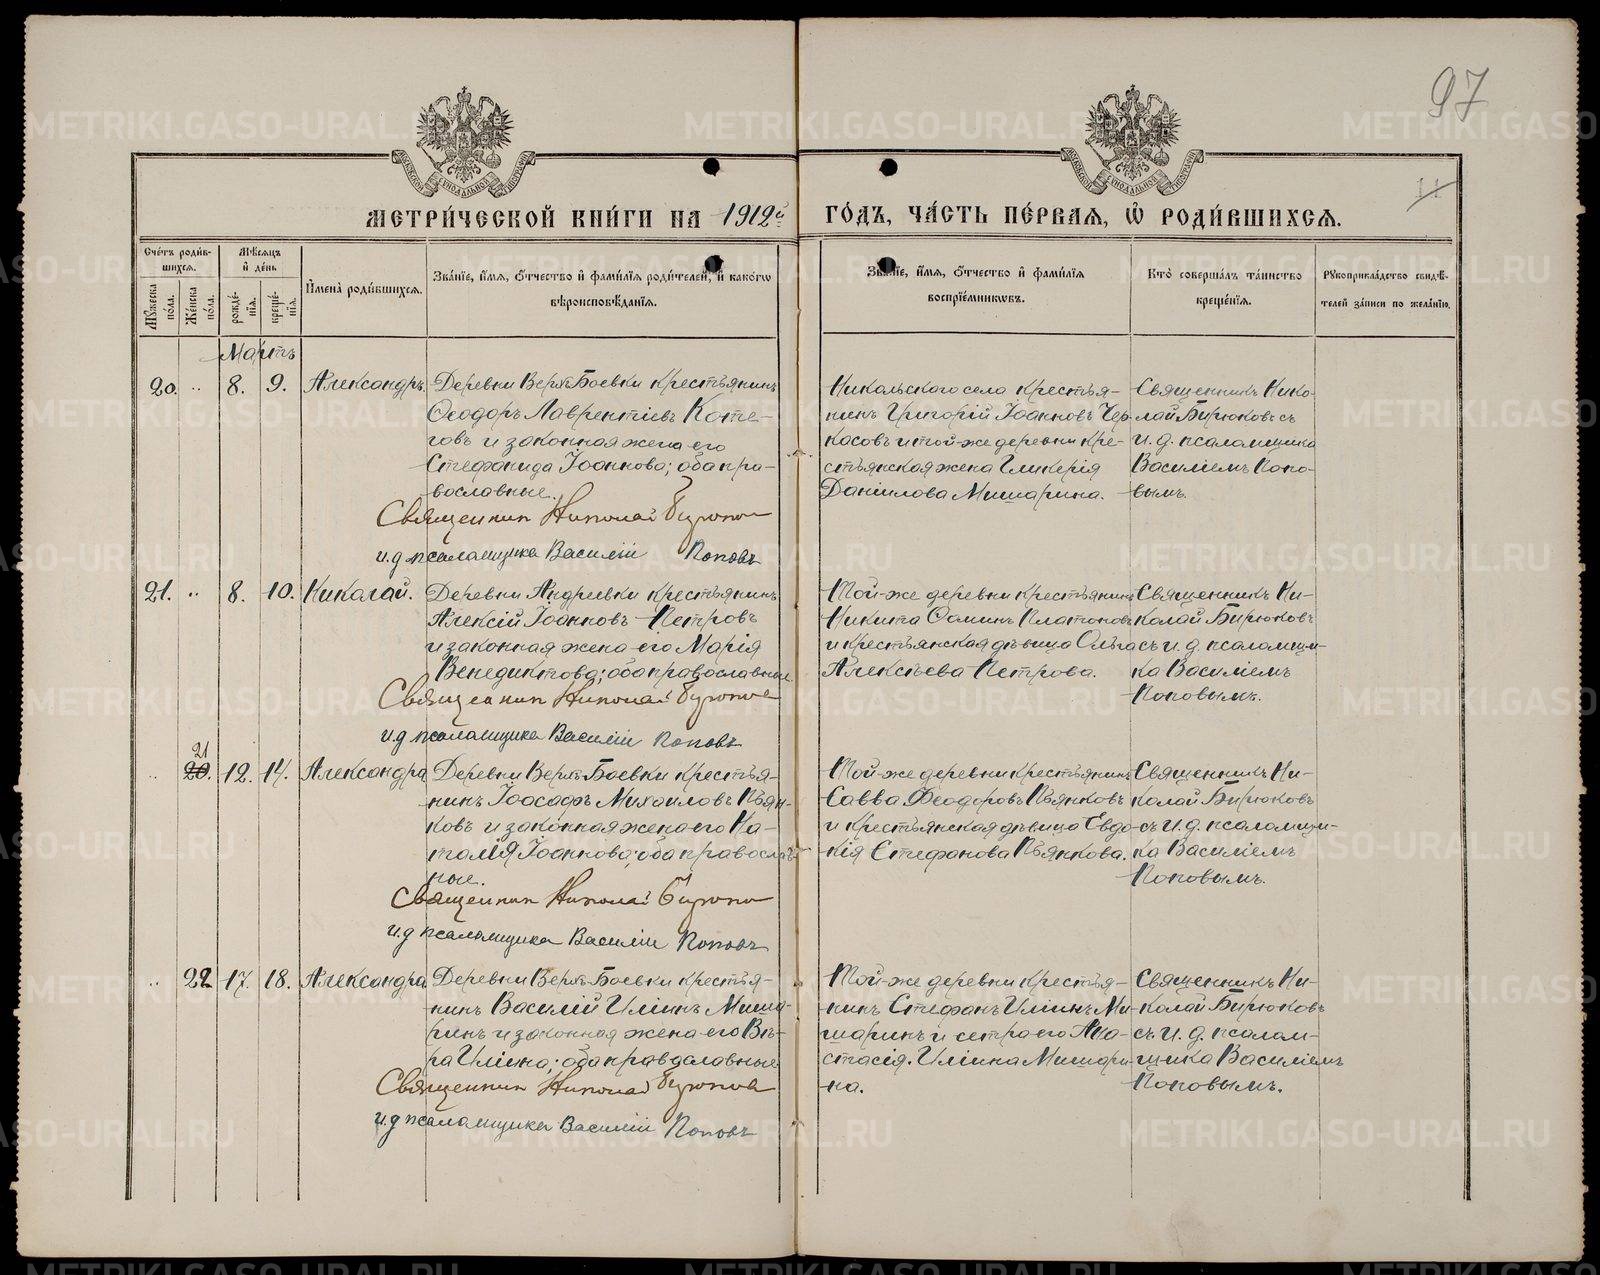 97
11
МЕТРИ́ЧЕСКОЙ КНИ́ГИ НА 1912й ГО́ДЪ, ЧА́СТЬ ПЕ́РВАЯ, Ѡ РОДИ́ВШИХСЯ.
Сче́тъ роди́вшихся.
Мѣ́сяцъ и де́нь
Му́жеска по́ла.
Же́нска по́ла.
рожде́нїя.
креще́нїя.
Имена̀ роди́вшихся.
Зва́нїе, и́мя, о́тчество и фами́лїя роди́телей, и како́гѡ
вѣроисповѣ́данїя.
Зва́нїе, и́мя, о́тчество и фами́лїя
воспрїе́мниковъ.
Кто̀ соверша́лъ та́инство
креще́нїя.
Рукоприкла́дство свидѣ́-
телей за́писи по жела́нїю.
Мартъ
20. " 8. 9. Александръ
Деревни Верхъ Боевки крестьянинъ
Ѳеодоръ Лаврентіевъ Коте-
говъ и законная жена его
Стефанида Іоаннова; оба пра-
вославные.
Священник Николай Бирюков
и.д псаломщика Василій Поповъ
Никольскаго села крестья-
нинъ Григорій Іоанновъ Чер-
касовъ и той-же деревни кре-
стьянская жена Гликерія
Даниилова Мишарина.
Священникъ Нико-
лай Бирюковъ съ
и. д. псаломщика
Василіемъ Попо-
вымъ.
21. " 8. 10. Николай.
Деревни Андреевки крестьянинъ
Алексій Іоанновъ Петровъ
и законная жена его Марія
Венедиктова; оба православные
Священник Николай Бирюков
и.д псаломщика Василій Поповъ
Той-же деревни крестьянинъ
Никита Ѳоминъ Платоновъ
и крестьянская дѣвица Ольга
Алексѣева Петрова.
Священникъ Ни-
колай Бирюковъ
съ и. д. псаломщи-
ка Василіемъ
Поповымъ.
21
" 20. 12. 14. Александра
Деревни Верхъ Боевки крестья-
нинъ Іоасафъ Михаиловъ Пьян-
ковъ и законная жена его На-
талія Іоаннова; оба православ-
ные.
Священник Николай Бирюков
и.д псаломщика Василій Поповъ
Той-же деревни крестьянинъ
Савва Ѳеодоровъ Пьянковъ
и крестьянская дѣвица Евдо-
кія Стефанова Пьянкова.
Священникъ Ни-
колай Бирюковъ
съ и. д. псаломщи-
ка Василіемъ
Поповымъ.
" 22 17. 18. Александра
Деревни Верхъ Боевки крестья-
нинъ Василій Иліинъ Миша-
ринъ и законная жена его Вѣ-
ра Иліина; оба православные
Священник Николай Бирюков
и.д псаломщика Василій Поповъ
Той-же деревни крестья-
нинъ Стефанъ Иліинъ Ми-
шаринъ и сестра его Ана-
стасія Иліина Мишари-
на.
Священникъ Ни-
колай Бирюковъ
съ и. д. псалом-
щика Василіемъ
Поповымъ.
METRIKI.GASO-URAL.RU